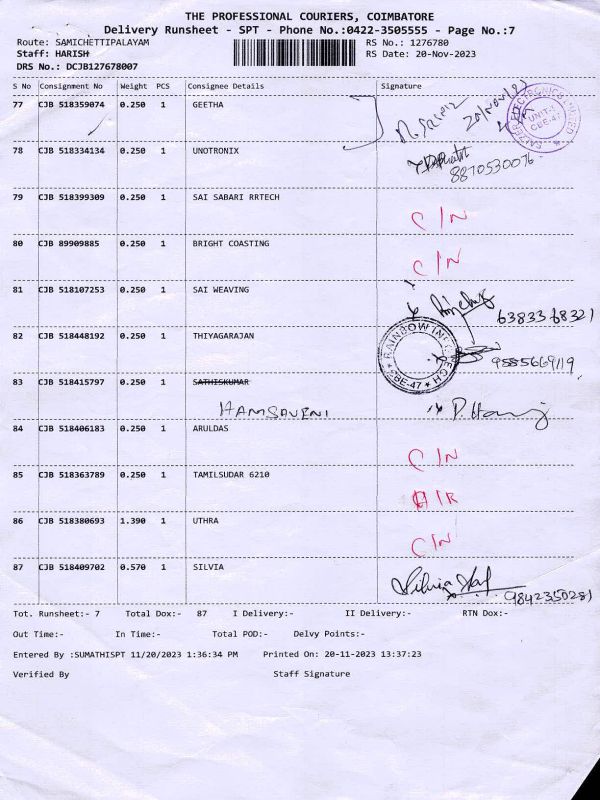 THE PROFESSIONAL COURIERS, COIMBATORE
Delivery Runsheet - SPT - Phone No.:0422-3505555 - Page No.:7
Route: SAMICHETTIPALAYAM RS No.: 1276780
Staff: HARISH RS Date: 20-Nov-2023
DRS No.: DCJB127678007
S No Consignment No Weight PCS Consignee Details Signature
77 CJB 518359074 0.250 1 GEETHA
SALZER ELECTRONICS LIMITED UNIT-1 CBE-47
78 CJB 518334134 0.250 1 UNOTRONIX
8870530076
79 CJB 518399309 0.250 1 SAI SABARI RRTECH
C/N
80 CJB 89909885 0.250 1 BRIGHT COASTING
C/N
81 CJB 518107253 0.250 1 SAI WEAVING
6383368321
82 CJB 518448192 0.250 1 THIYAGARAJAN
9585669119
83 CJB 518415797 0.250 1 SATHISKUMAR
HAMSAVENI
84 CJB 518406183 0.250 1 ARULDAS
C/N
85 CJB 518363789 0.250 1 TAMILSUDAR 6210
86 CJB 518380693 1.390 1 UTHRA
C/N
87 CJB 518409702 0.570 1 SILVIA
Silvia
9842350281
Tot. Runsheet:- 7 Total Dox:- 87 I Delivery:- II Delivery:- RTN Dox:-
Out Time:- In Time:- Total POD:- Delvy Points:-
Entered By :SUMATHISPT 11/20/2023 1:36:34 PM Printed On: 20-11-2023 13:37:23
Verified By Staff Signature